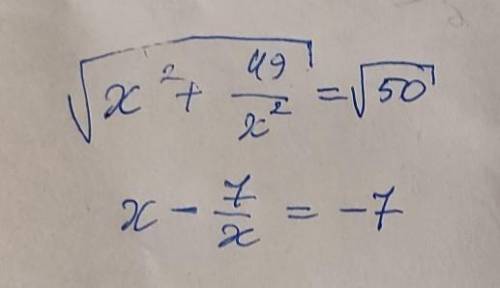 √(x² + 49/x²) = √50
x − 7/x = −7